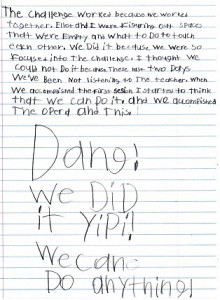 The Challenge worked because we worked
together. Elliot and I were figuring out spaces
That were Empty and What to Do to touch
each other. We Did it because we were so
focused into The challenge. I thought we
could not Do it because These last two Days
We've Been Not listening to The teacher. When
we accomplished the first session I started to think
that we can Do it, and we accomplished
The Opera and This!
Dang!
We DiD
it YiPi!
We can
Do anything!